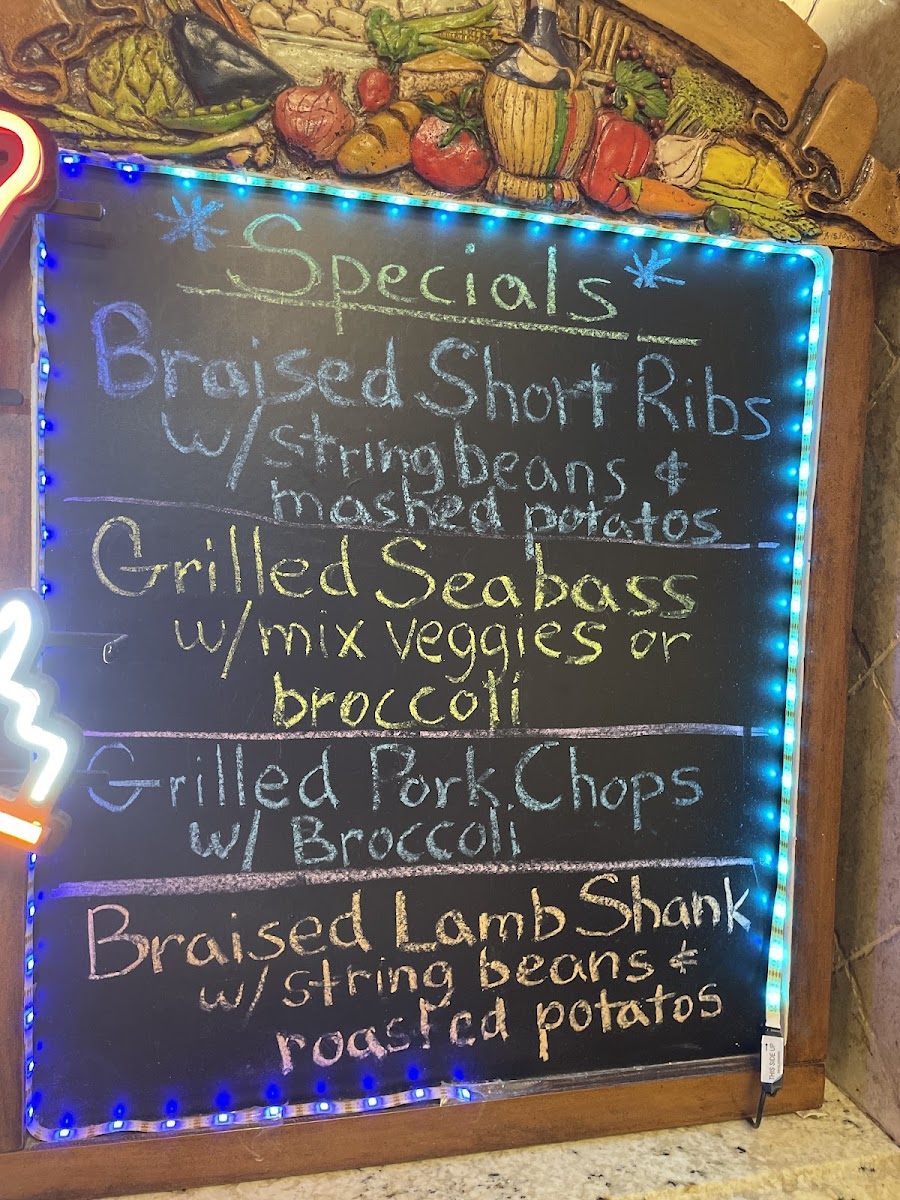 * Specials *
Braised Short Ribs
w/ string beans &
mashed potatos
Grilled Seabass
w/ mix veggies or
broccoli
Grilled Pork Chops
w/ Broccoli
Braised Lamb Shank
w/ string beans &
roasted potatos
THIS SIDE UP